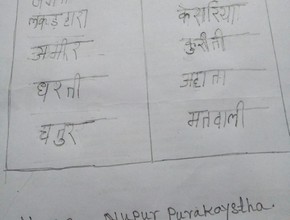 लकड़हारा केसरिया
जमीर कुरीती
धरती अहाता
चतुर मतवाली
Nupur Purakaystha.